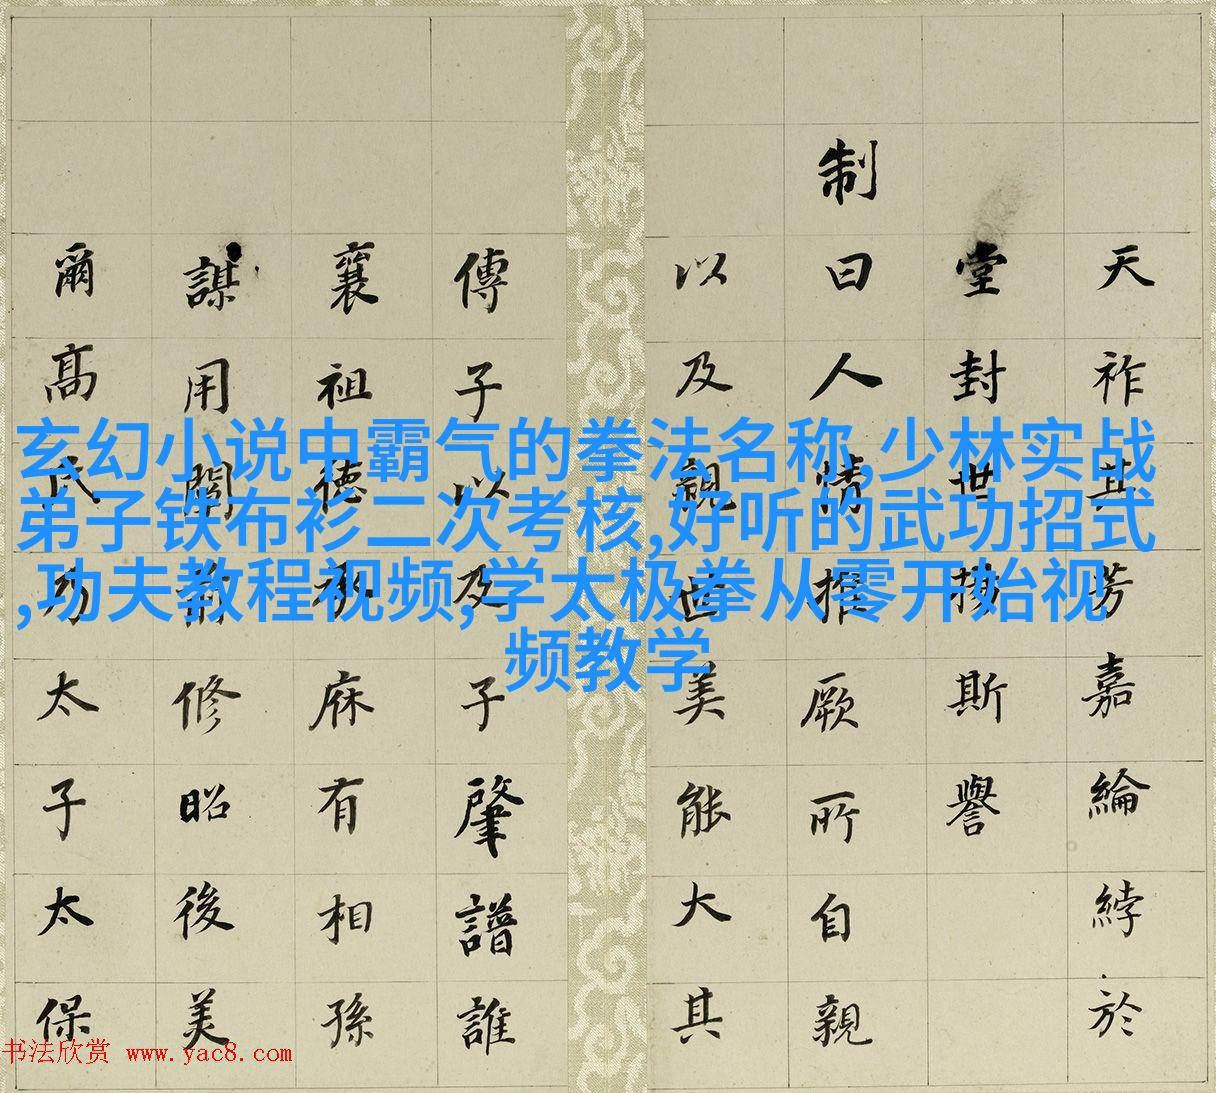 玄幻小说中霸气的拳法名称,少林实战
弟子铁布衫二次考核,好听的武功招式
,功夫教程视频,学太极拳从零开始视
频教学
天祚其芳嘉綸綍於
堂封世揚斯譽
制曰人情推厥所自親
以及親世美能大其
傳子以及子肇譜誰
襄祖德庥有相孫
謀用修昭後美
爾高氏太子太保
书法欣赏 www.yac8.com